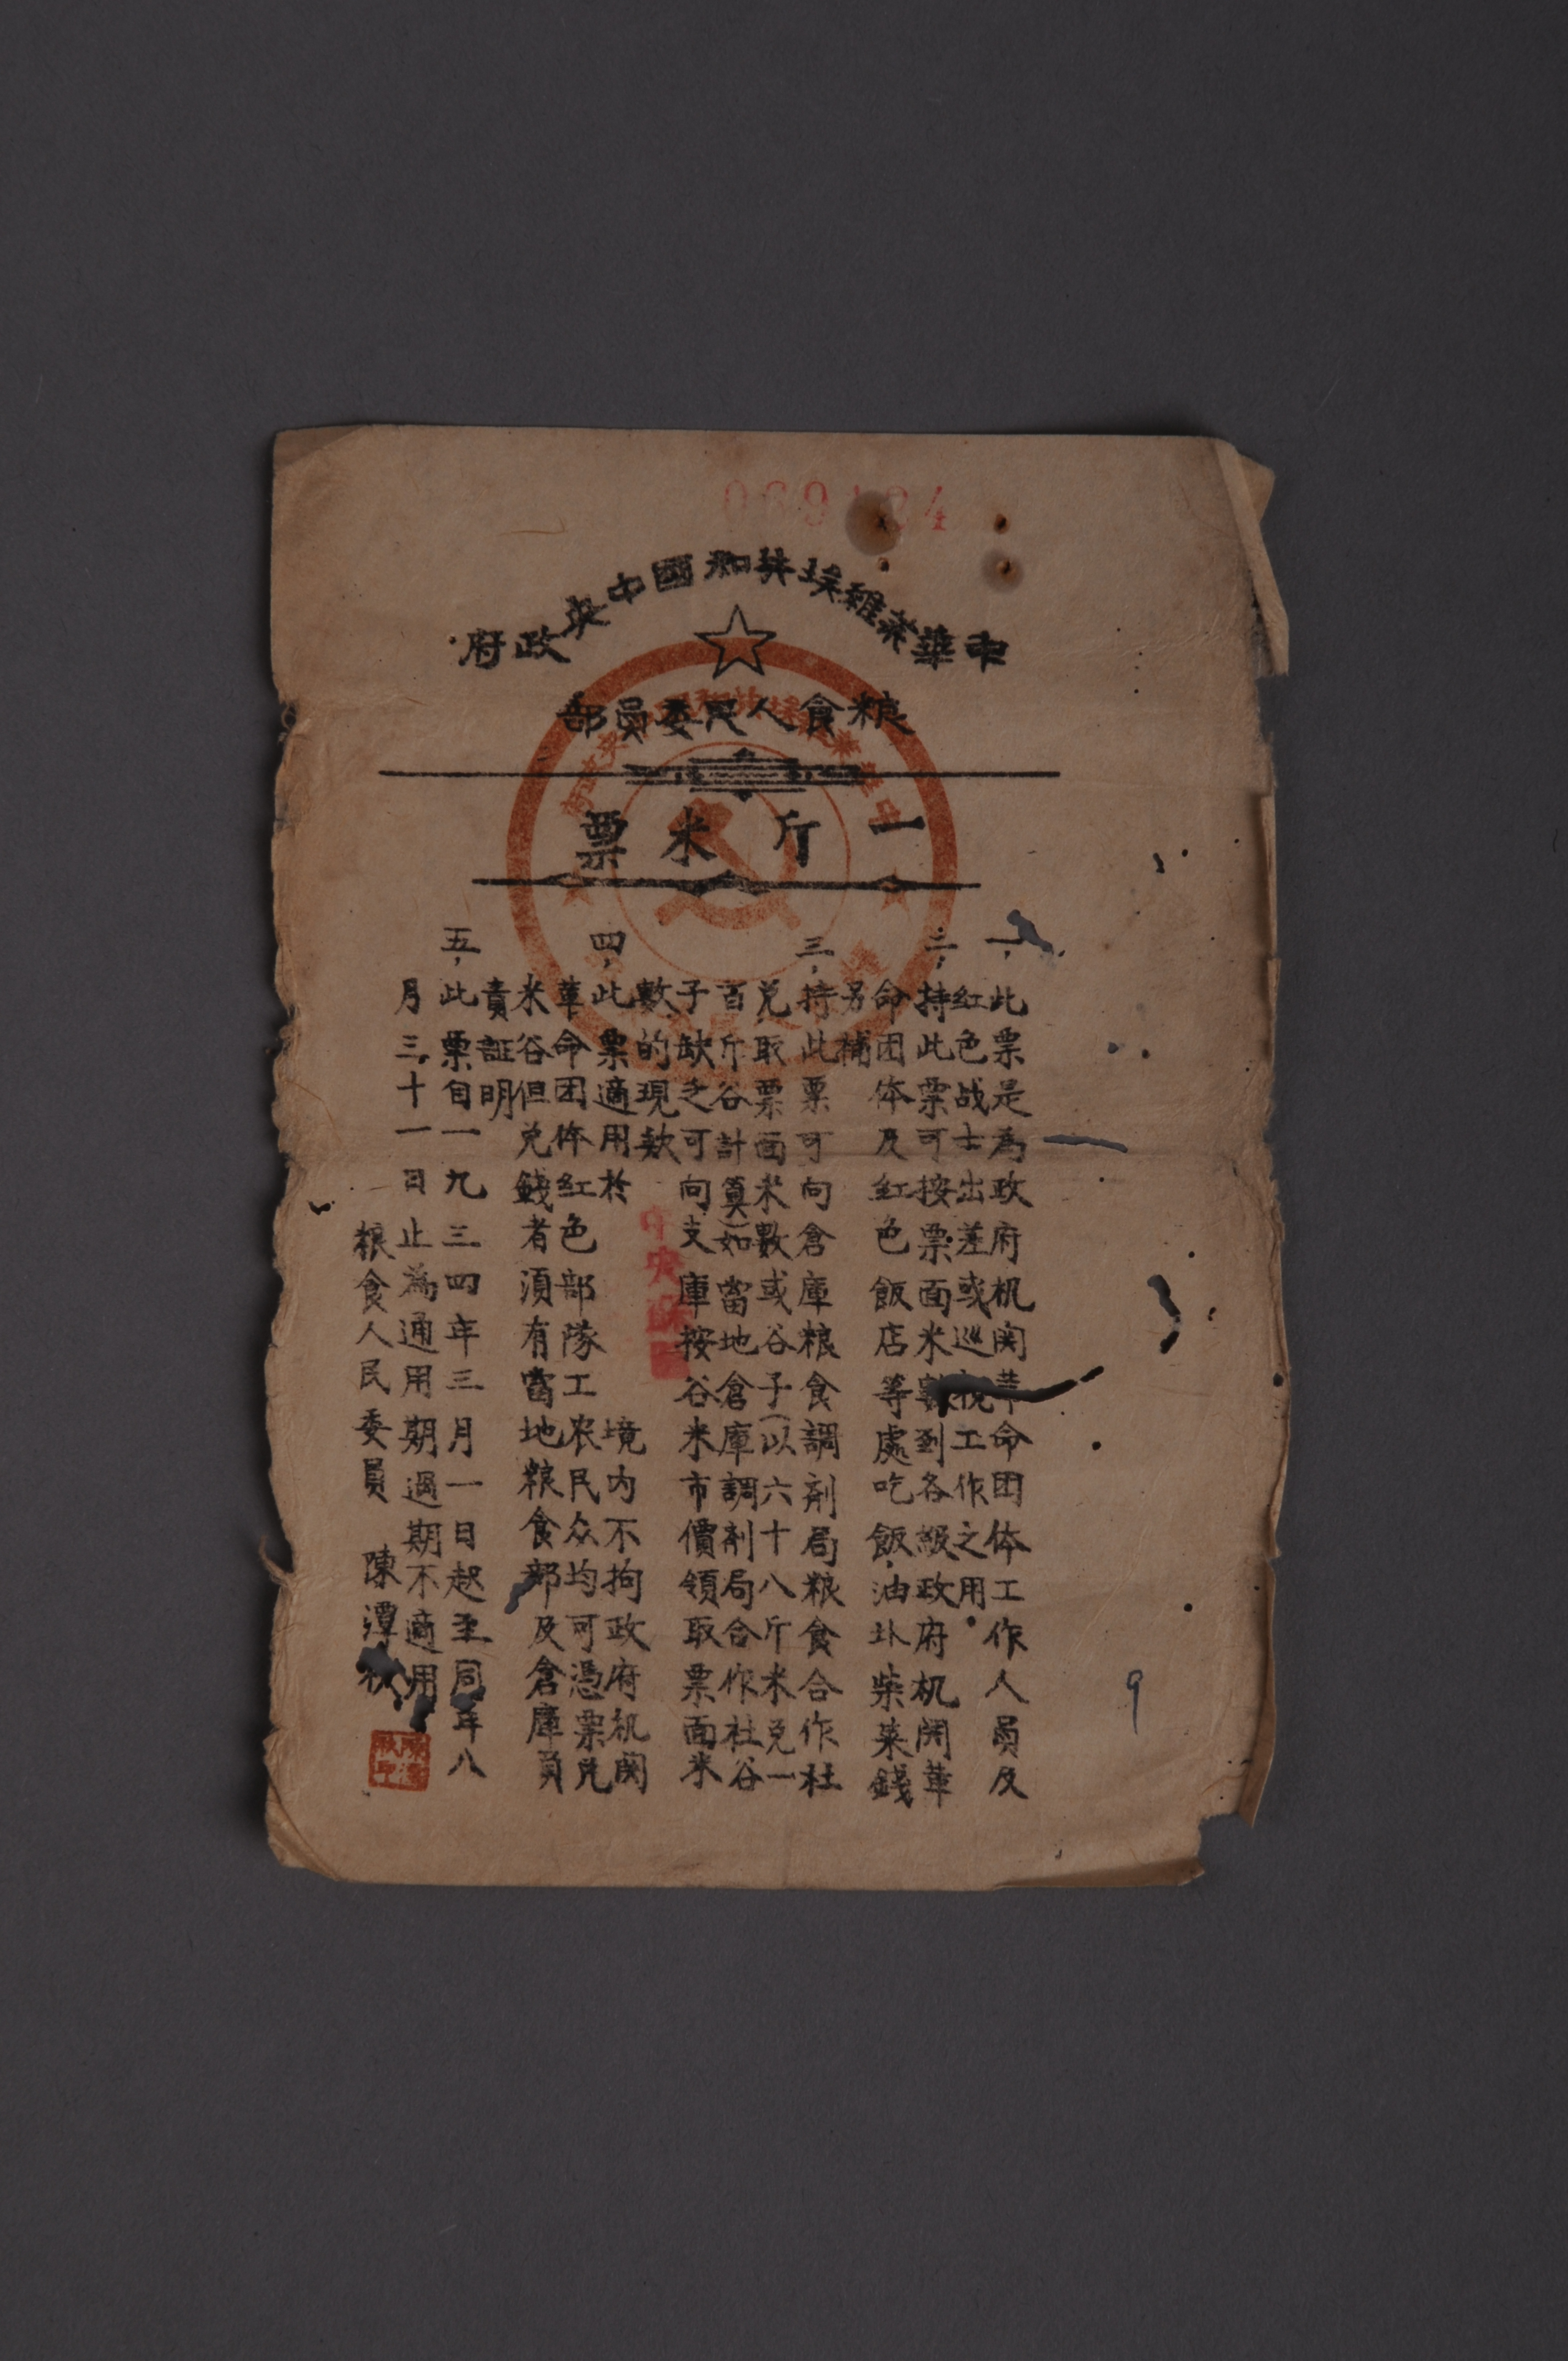 中華蘇維埃共和國中央政府
粮食人民委員部
一斤米票
一、此票是為政府机関革命团体工作人員及
紅色战士出差或巡視工作之用
二、持此票可按票面米數到各級政府机関革
命团体及紅色飯店等處吃飯,油盐柴菜錢
另補
三、持此票可向倉庫粮食調剂局粮食合作社
兑取票面米數或谷子(以六十八斤米兑一
百斤谷計算)如當地倉庫調剂局合作社谷
子缺乏可向支庫按谷米市價領取票面米
數的現款
四、此票適用於 境内不拘政府机関
革命团体紅色部隊工农民众均可憑票兑
米谷但兑錢者須有當地粮食部及倉庫員
責証明
五、此票自一九三四年三月一日起至同年八
月三十一日止為通用期過期不適用
粮食人民委員 陳潭秋
中央
9